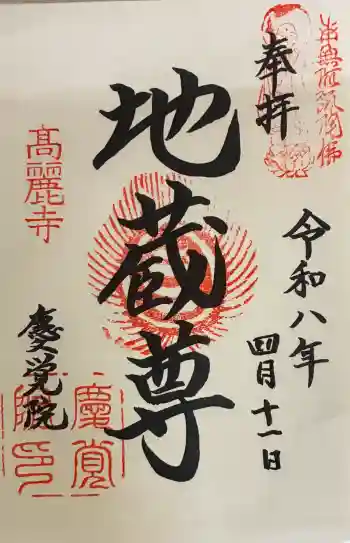 奉拝
地蔵尊
令和八年
四月十一日
高麗寺
慶覚院
慶覚
院印